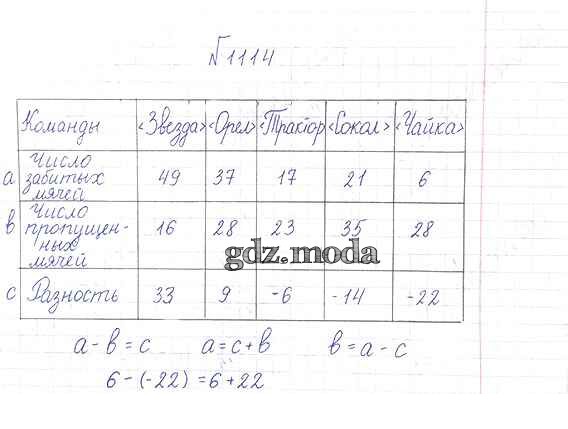 №1114
Команды «Звезда» «Орел» «Трактор «Сокол» «Чайка»
a Число забитых мячей 49 37 17 21 6
в Число пропущен-ных мячей 16 28 23 35 28
gdz.moda
c Разность 33 9 -6 -14 -22
a - в = c a = c + в в = a - c
6 - (-22) = 6 + 22